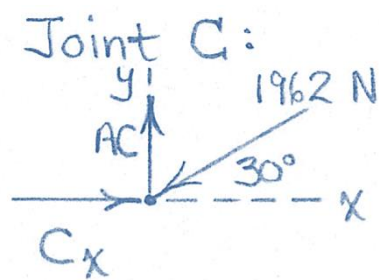 Joint C:
y
1962 N
AC
30°
x
Cx